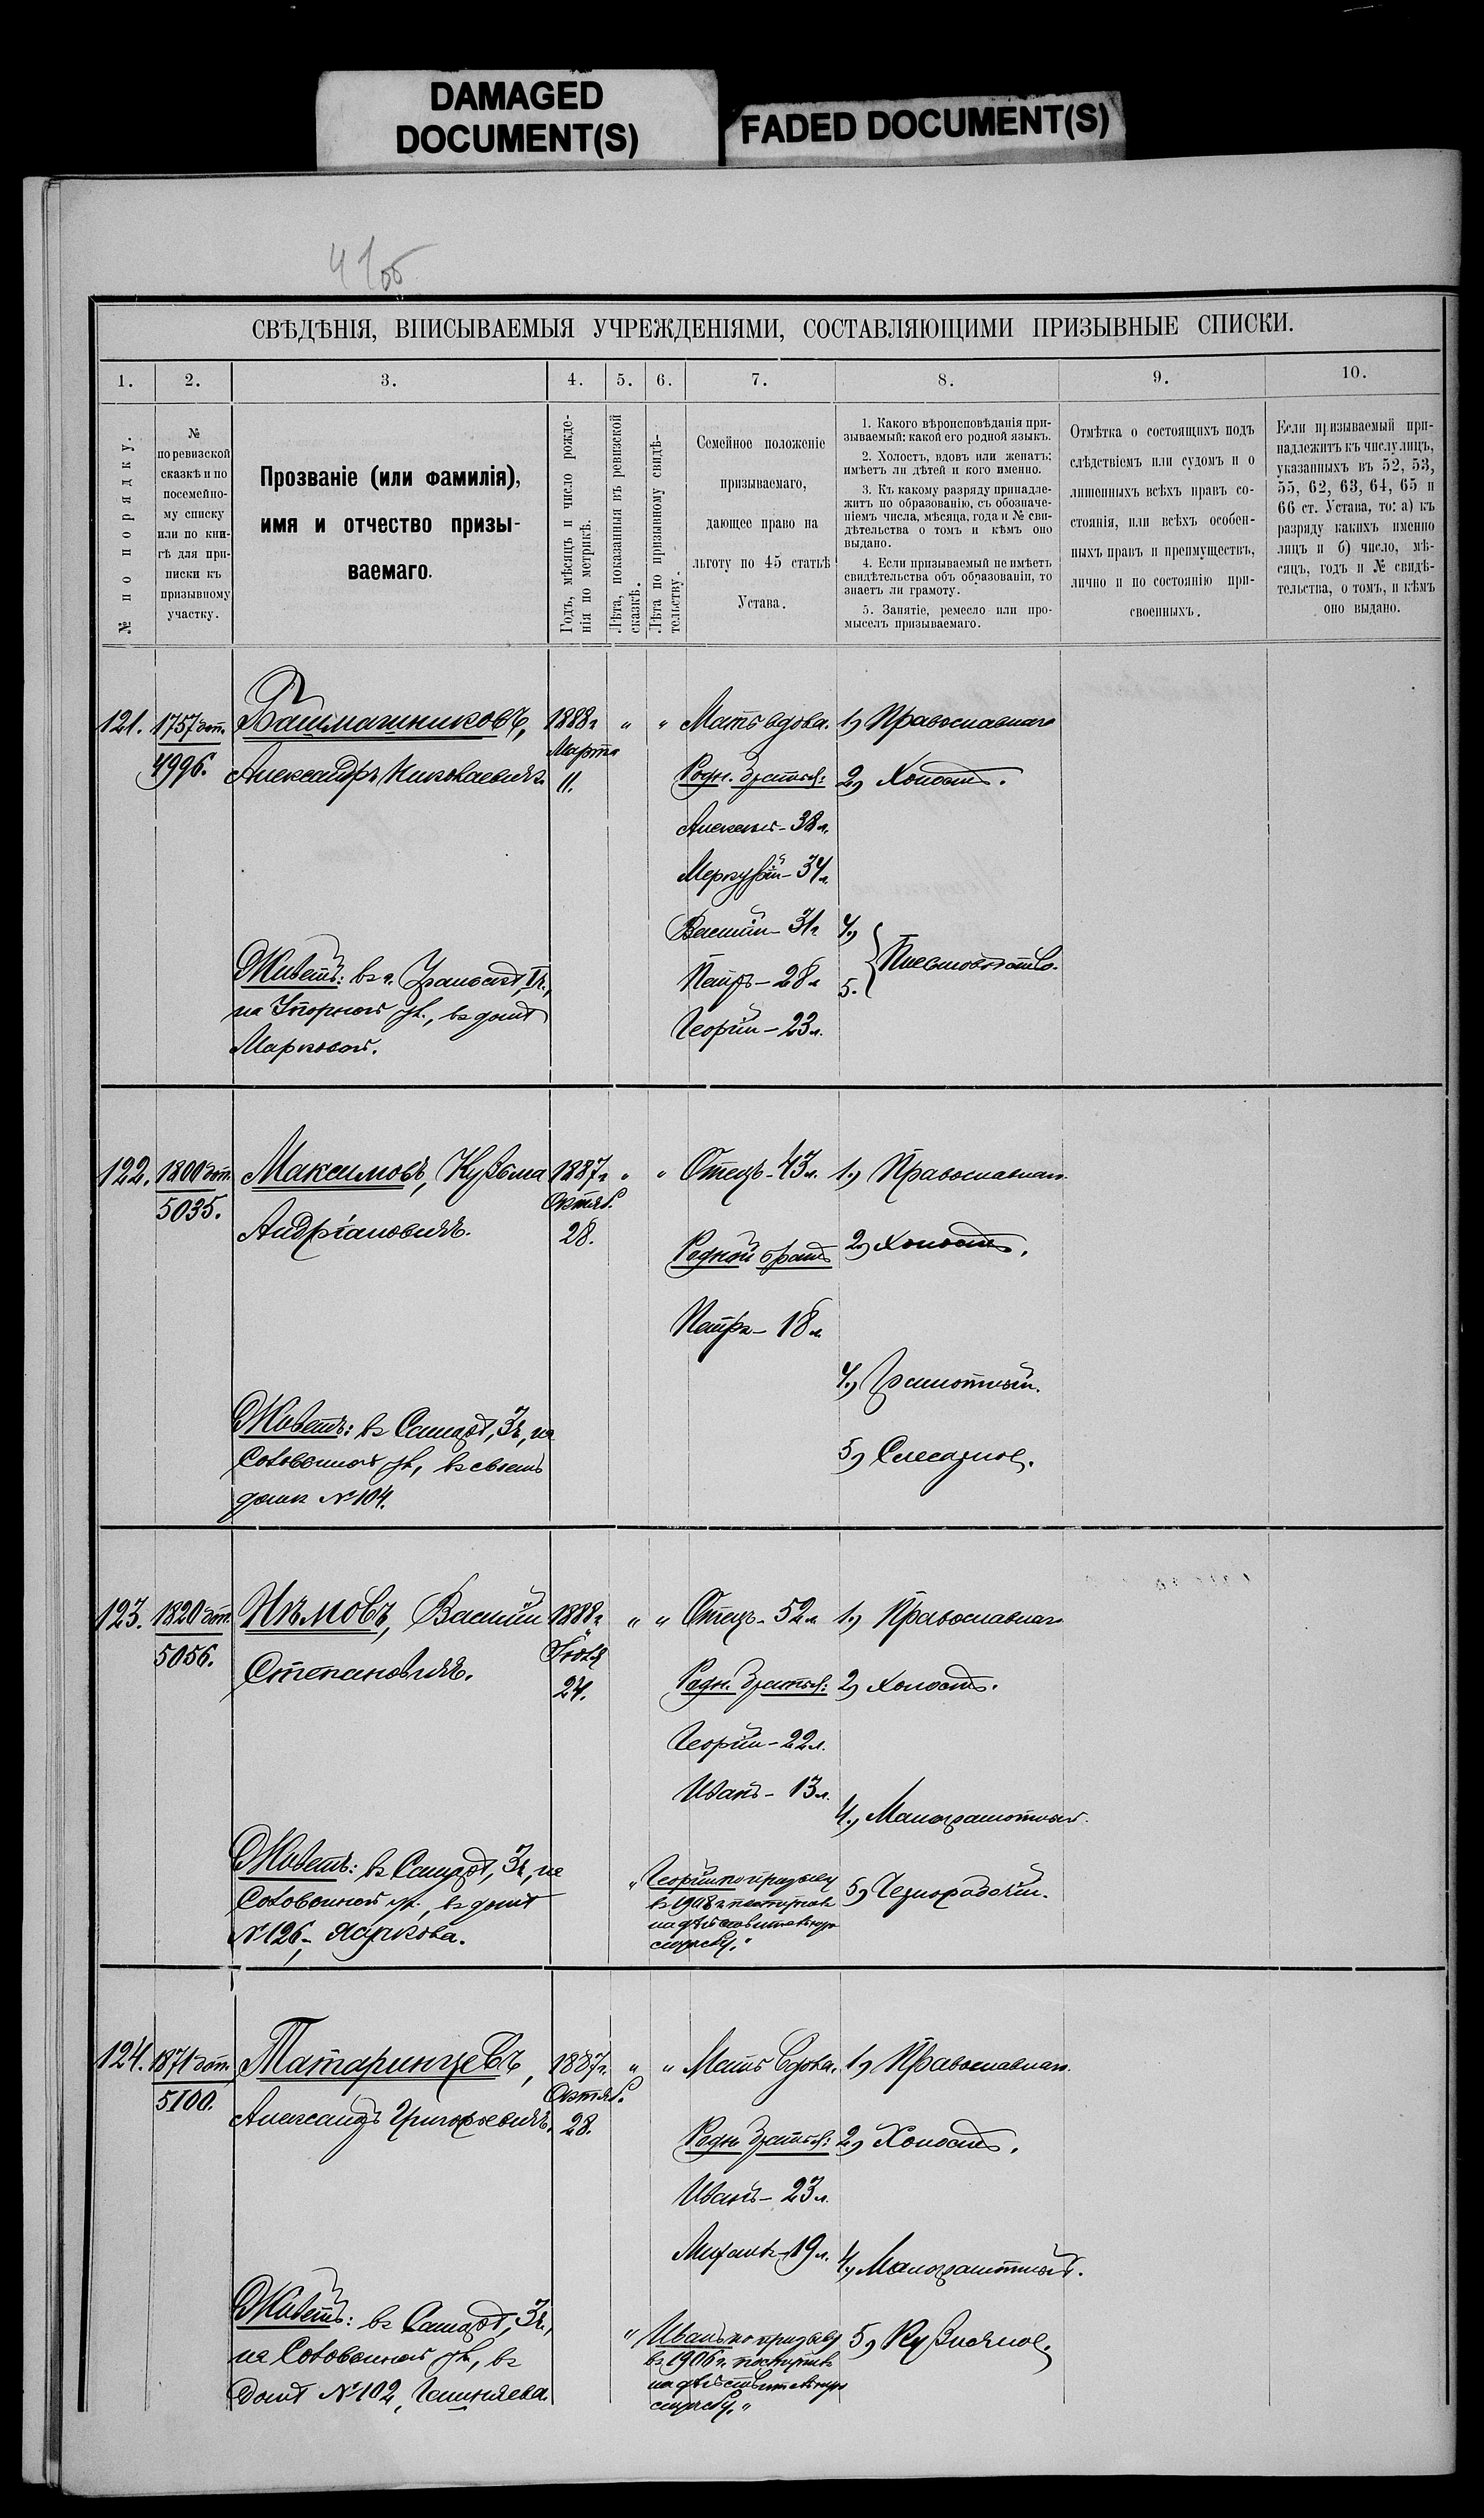 DAMAGED
DOCUMENT(S)
FADED DOCUMENT(S)
41об
СВѢДѢНІЯ, ВПИСЫВАЕМЫЯ УЧРЕЖДЕНІЯМИ, СОСТАВЛЯЮЩИМИ ПРИЗЫВНЫЕ СПИСКИ.
1. 2. 3. 4. 5. 6. 7. 8. 9. 10.
№ по порядку.
№
по ревизской
сказкѣ и по
посемейно-
му списку
или по кни-
гѣ для при-
писки къ
призывному
участку.
Прозваніе (или фамилія),
имя и отчество призы-
ваемаго.
Годъ, мѣсяцъ и число рожде-
нія по метрикѣ.
Лѣта, показанныя въ ревизской
сказкѣ.
Лѣта по призывному свидѣ-
тельству.
Семейное положеніе
призываемаго,
дающее право на
льготу по 45 статьѣ
Устава.
1. Какого вѣроисповѣданія при-
зываемый: какой его родной языкъ.
2. Холостъ, вдовъ или женатъ:
имѣетъ ли дѣтей и кого именно.
3. Къ какому разряду принадле-
житъ по образованію, съ обозначе-
ніемъ числа, мѣсяца, года и № сви-
дѣтельства о томъ и кѣмъ оно
выдано.
4. Если призываемый не имѣетъ
свидѣтельства объ образованіи, то
знаетъ ли грамоту.
5. Занятіе, ремесло или про-
мыселъ призываемаго.
Отмѣтка о состоящихъ подъ
слѣдствіемъ или судомъ и о
лишенныхъ всѣхъ правъ со-
стоянія, или всѣхъ особен-
ныхъ правъ и преимуществъ,
лично и по состоянію при-
своенныхъ.
Если призываемый при-
надлежитъ къ числу лицъ,
указанныхъ въ 52, 53,
55, 62, 63, 64, 65 и
66 ст. Устава, то: а) къ
разряду какихъ именно
лицъ и б) число, мѣ-
сяцъ, годъ и № свидѣ-
тельства, о томъ, и кѣмъ
оно выдано.
121. 1757
4996.
Башмашниковъ,
Александръ Николаевичъ.
1888г
Марта
11.
" "
Мать вдова.
Родн. братья:
Алексѣй - 38 л.
Меркурій - 34 л.
Василій - 31 г
Петръ - 28 л
Георгій - 23 л.
1) Православнаго
2) Холостъ.
4)
5.
Письмоводство.
Живетъ: въ г. Уральскѣ, II ч.,
на Уторной ул., въ домѣ
Марковой.
122. 1800
5035.
Максимовъ, Кузьма
Андріановичъ.
1887г
Октяб.
28.
" "
Отецъ - 43 л.
Родной братъ
Петръ - 18 л.
1) Православнаго
2) Холостъ.
4) Грамотный.
5) Слесарное.
Живетъ: въ Самарѣ, 3ч, на
Соловьиной ул., въ своемъ
домѣ №104.
123. 1820
5056.
Изъмовъ, Василій
Степановичъ.
1888г
Іюля
24.
" "
Отецъ - 52 л
Родн. братья:
Георгій - 22 л.
Иванъ - 13 л.
"Георгій по призыву
въ 1908 г. поступилъ
на дѣйствительную
службу."
1) Православнаго
2) Холостъ.
4) Малограмотный.
5) Чернорабочій.
Живетъ: въ Самарѣ, 3ч, на
Соловьиной ул., въ домѣ
№126,
124. 1871
5100.
Татаринцевъ,
Александръ Григорьевичъ.
1887г.
Октяб.
28.
" "
Мать вдова.
Родн братья:
Иванъ - 23 л.
Михаилъ - 19 л.
"Иванъ по призыву
въ 1906 г. поступилъ
на дѣйствительную
службу."
1) Православнаго
2) Холостъ.
4) Малограмотный.
5) Кузнечное.
Живетъ: въ Самарѣ, 3ч,
на Соловьиной ул., въ
домѣ №102,